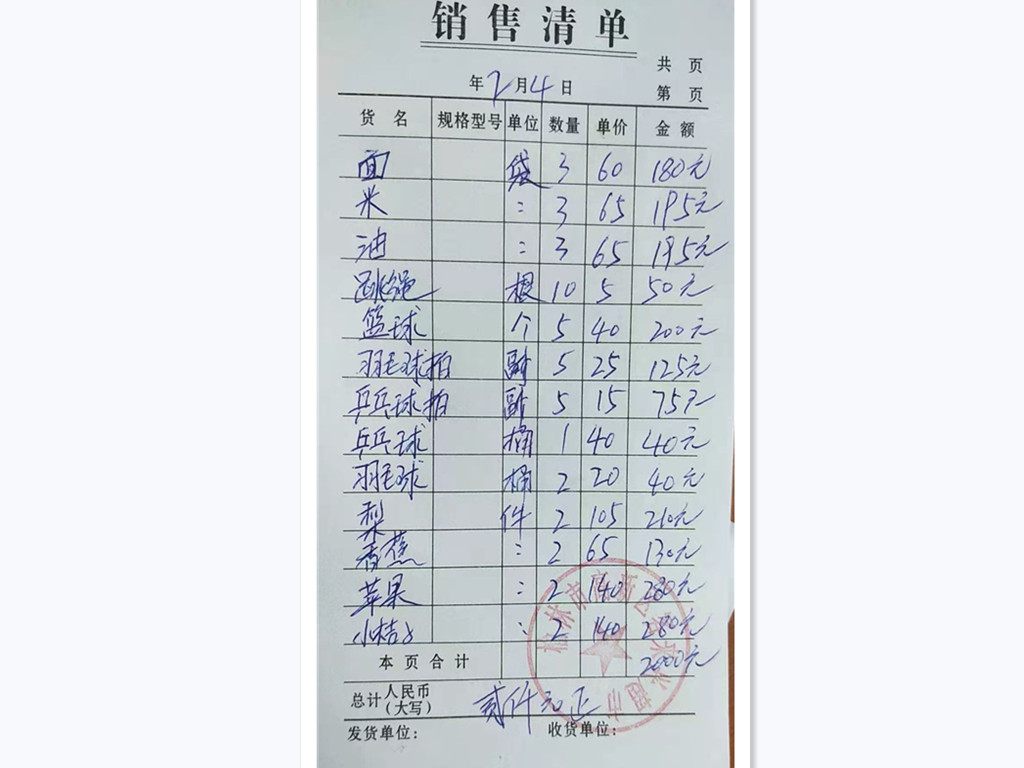 销售清单
共 页
年2月4日
第 页
货名 规格型号 单位 数量 单价 金额
面 袋 3 60 180元
米 : 3 65 195元
油 : 3 65 195元
跳绳 根 10 5 50元
篮球 个 5 40 200元
羽毛球拍 副 5 25 125元
乒乓球拍 副 5 15 75元
乒乓球 桶 1 40 40元
羽毛球 桶 2 20 40元
梨 件 2 105 210元
香蕉 : 2 65 130元
苹果 : 2 140 280元
小桔子 : 2 140 280元
本页合计 2000元
总计人民币(大写) 贰仟元正
发货单位: 收货单位: